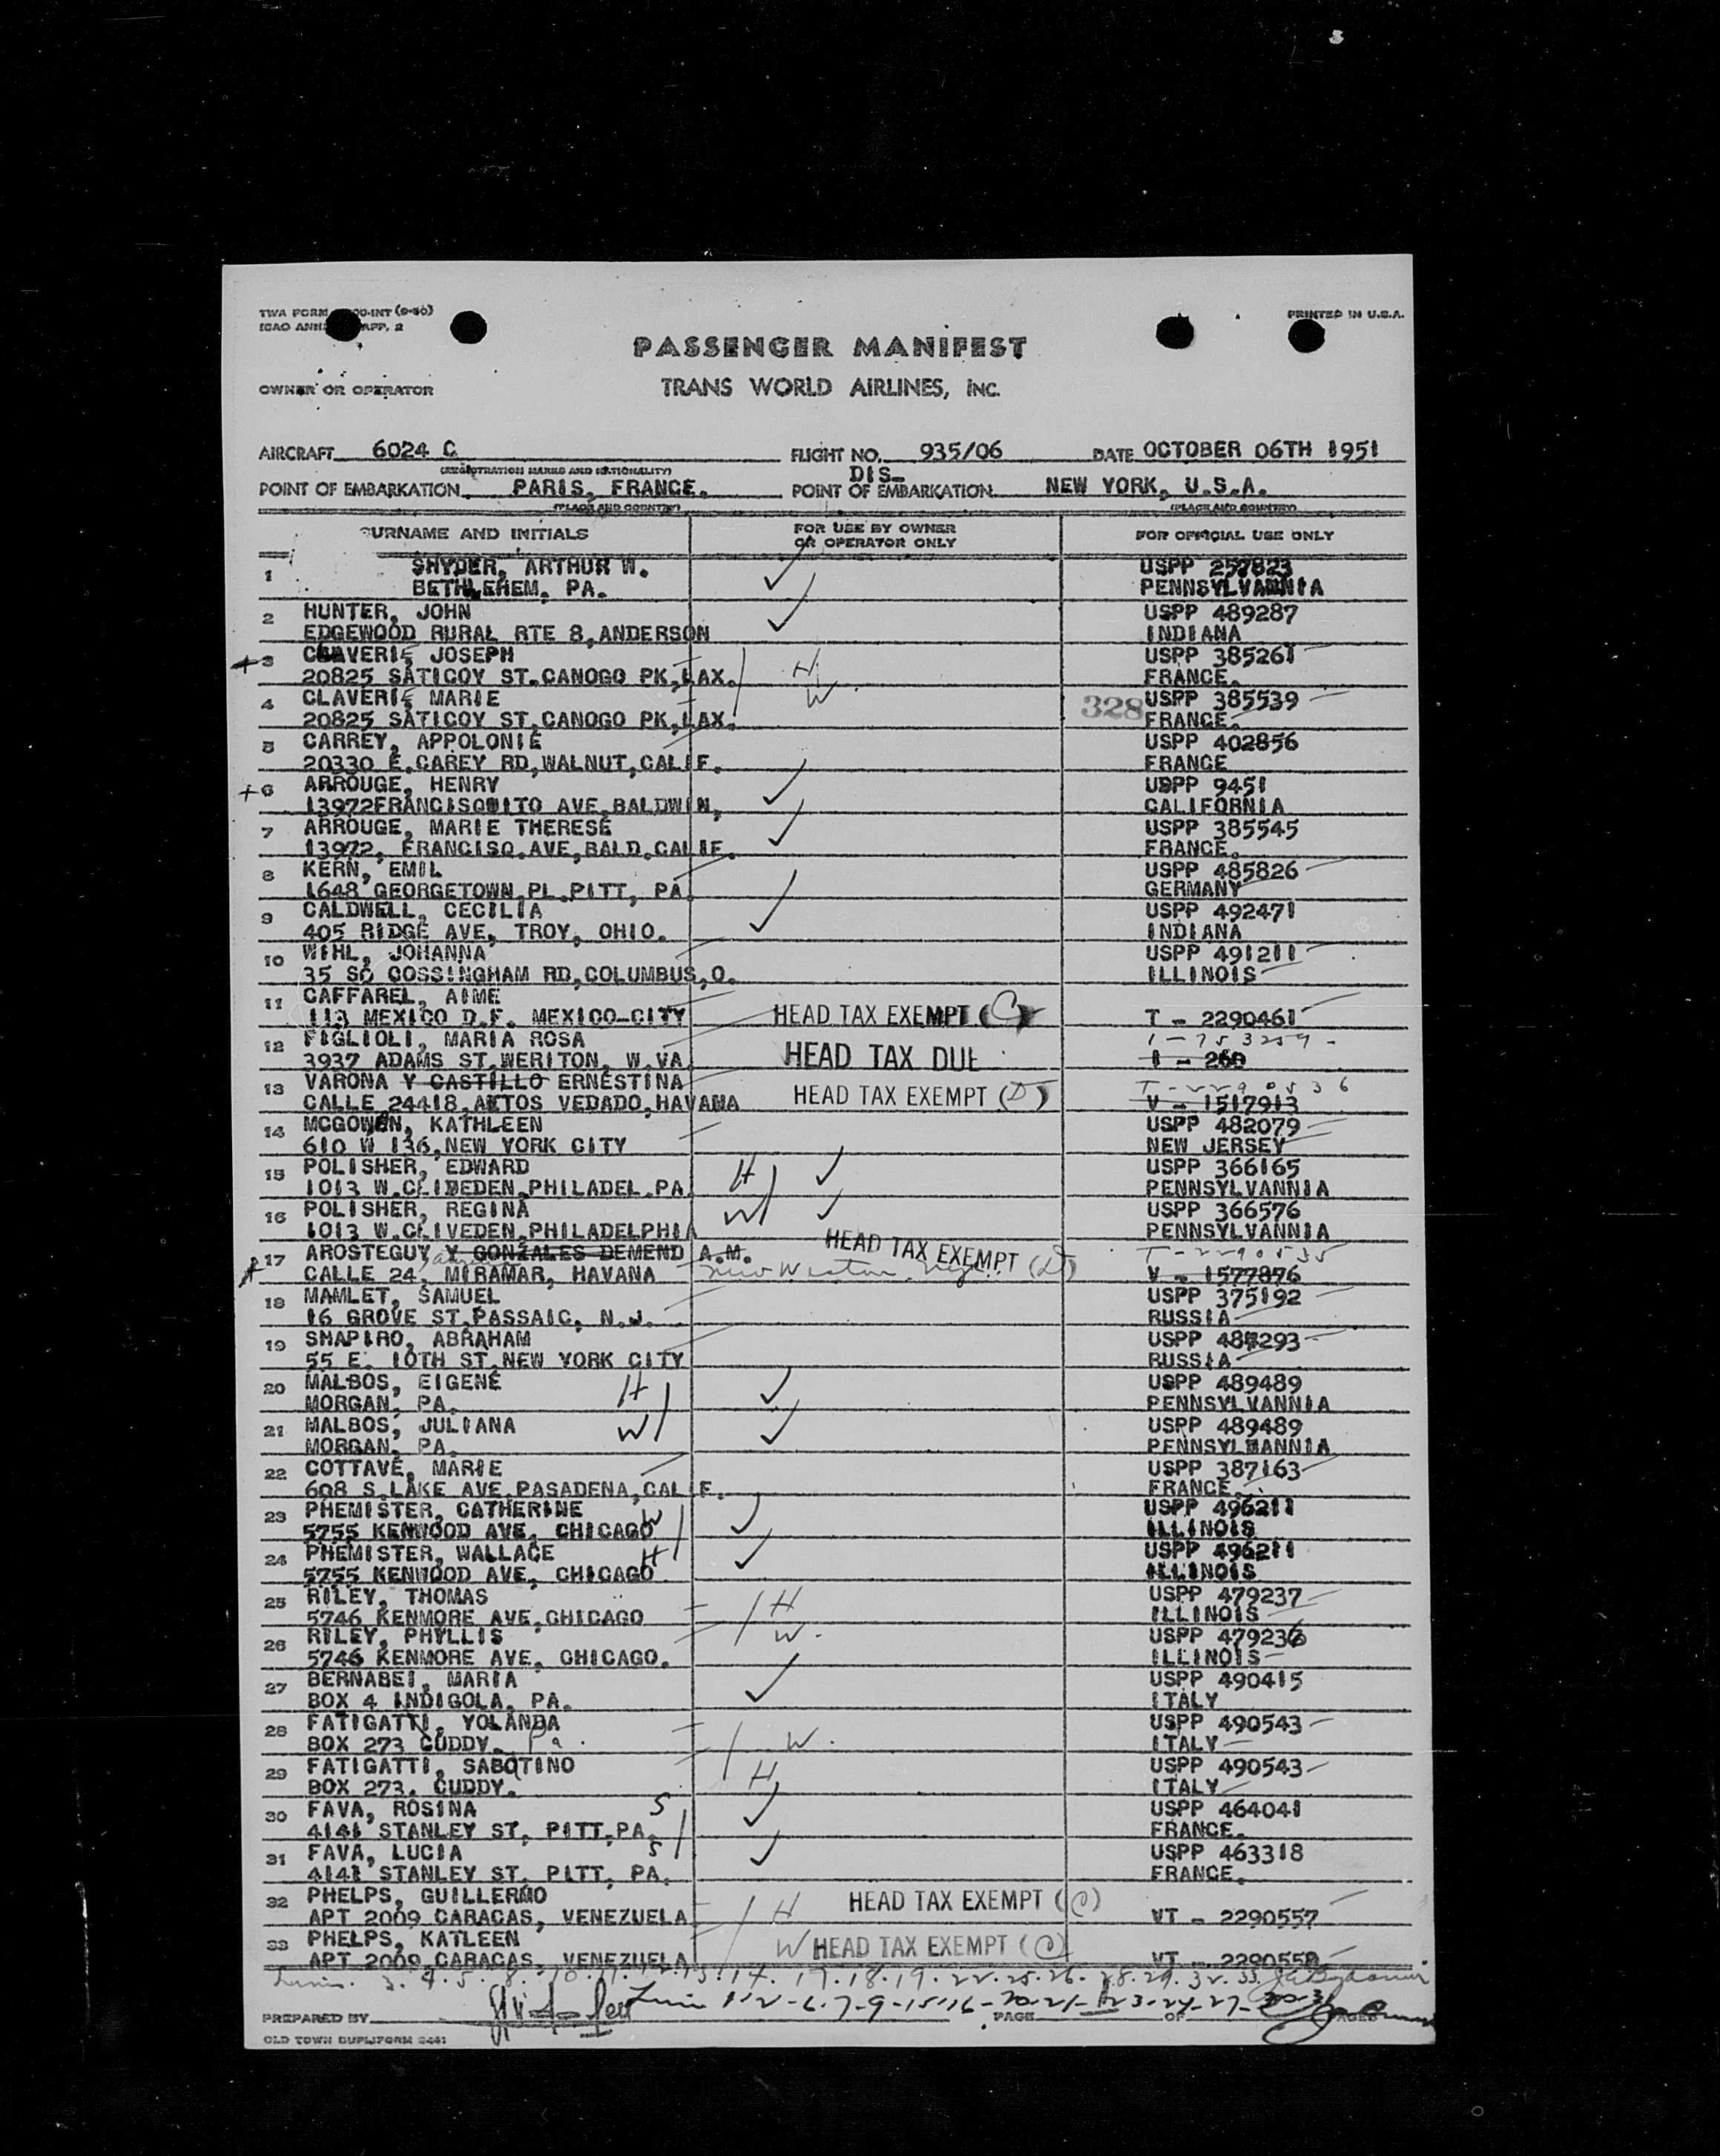 TWA FORM 00-INT (9-50)
ICAO ANN APP. 2
PRINTED IN U.S.A.
PASSENGER MANIFEST
OWNER OR OPERATOR
TRANS WORLD AIRLINES, INC.
AIRCRAFT 6024 C FLIGHT NO. 935/06 DATE OCTOBER 06TH 1951
(REGISTRATION MARKS AND NATIONALITY)
DIS-
POINT OF EMBARKATION PARIS, FRANCE. POINT OF EMBARKATION NEW YORK, U.S.A.
(PLACE AND COUNTRY) (PLACE AND COUNTRY)
SURNAME AND INITIALS FOR USE BY OWNER OR OPERATOR ONLY FOR OFFICIAL USE ONLY
1 SNYDER, ARTHUR W. USPP 257823
BETHLEHEM, PA. PENNSYLVANNIA
2 HUNTER, JOHN USPP 489287
EDGEWOOD RURAL RTE 8,ANDERSON INDIANA
3 CLAVERIE, JOSEPH USPP 385261
20825 SATICOY ST.CANOGO PK,LAX. H FRANCE.
4 CLAVERIE MARIE W 328 USPP 385539
20825 SATICOY ST.CANOGO PK,LAX. FRANCE.
5 CARREY, APPOLONIE USPP 402856
20330 E.CAREY RD,WALNUT,CALIF. FRANCE
6 ARROUGE, HENRY USPP 9451
13972FRANCISQUITO AVE,BALDWIN, CALIFORNIA
7 ARROUGE, MARIE THERESE USPP 385545
13972, FRANCISQ.AVE,BALD.CALIF. FRANCE.
8 KERN, EMIL USPP 485826
1648 GEORGETOWN,PL.PITT, PA. GERMANY
9 CALDWELL, CECILIA USPP 492471
405 RIDGE AVE, TROY, OHIO. INDIANA
10 WIHL, JOHANNA USPP 491211
35 SO COSSINGHAM RD,COLUMBUS,O. ILLINOIS
11 CAFFAREL, AIME
113 MEXICO D.F. MEXICO-CITY HEAD TAX EXEMPT (C) T - 2290461
12 FIGLIOLI, MARIA ROSA
3937 ADAMS ST.WERITON, W.VA. HEAD TAX DUE I - 260
13 VARONA Y CASTILLO ERNESTINA T-2290536
CALLE 24418,ALTOS VEDADO,HAVANA HEAD TAX EXEMPT (D) V - 1517913
14 MCGOWEN, KATHLEEN USPP 482079
610 W 136,NEW YORK CITY NEW JERSEY
15 POLISHER, EDWARD H USPP 366165
1013 W.CLIVEDEN,PHILADEL.PA. PENNSYLVANNIA
16 POLISHER, REGINA W USPP 366576
1013 W.CLIVEDEN,PHILADELPHIA PENNSYLVANNIA
17 AROSTEGUY Y GONZALES DEMEND A.M. HEAD TAX EXEMPT (D) T-2290535
CALLE 24, MIRAMAR, HAVANA V - 1577876
18 MAMLET, SAMUEL USPP 375192
16 GROVE ST.PASSAIC, N.J. RUSSIA
19 SHAPIRO, ABRAHAM USPP 487293
55 E. 10TH ST.NEW YORK CITY RUSSIA
20 MALBOS, EIGENE H USPP 489489
MORGAN, PA. PENNSYLVANNIA
21 MALBOS, JULIANA W USPP 489489
MORGAN, PA. PENNSYLVANNIA
22 COTTAVE, MARIE USPP 387163
608 S.LAKE AVE.PASADENA,CALIF. FRANCE.
23 PHEMISTER, CATHERINE W USPP 496211
5755 KENWOOD AVE, CHICAGO ILLINOIS
24 PHEMISTER, WALLACE H USPP 496211
5755 KENWOOD AVE, CHICAGO ILLINOIS
25 RILEY, THOMAS H USPP 479237
5746 KENMORE AVE.CHICAGO ILLINOIS
26 RILEY, PHYLLIS W. USPP 479236
5746 KENMORE AVE, CHICAGO. ILLINOIS
27 BERNABEI, MARIA USPP 490415
BOX 4 INDIGOLA, PA. ITALY
28 FATIGATTI, YOLANDA USPP 490543
BOX 273 CUDDY. Pa. W. ITALY
29 FATIGATTI, SABOTINO USPP 490543
BOX 273. CUDDY. H ITALY
30 FAVA, ROSINA S USPP 464041
4141 STANLEY ST, PITT,PA. FRANCE.
31 FAVA, LUCIA S USPP 463318
4141 STANLEY ST. PITT, PA. FRANCE.
32 PHELPS, GUILLERMO HEAD TAX EXEMPT (C)
APT 2009 CARACAS, VENEZUELA H VT - 2290557
33 PHELPS, KATLEEN W HEAD TAX EXEMPT (C)
APT 2009 CARACAS, VENEZUELA VT - 2290558
3.4.5.8.10.11.12.13.14.17.18.19.22.25.26.28.29.32.33.
1-2-6-7-9-15-16-20-21-23-24-27-30-31
PREPARED BY PAGE OF PAGES
OLD TOWN DUPLIFORM 2441